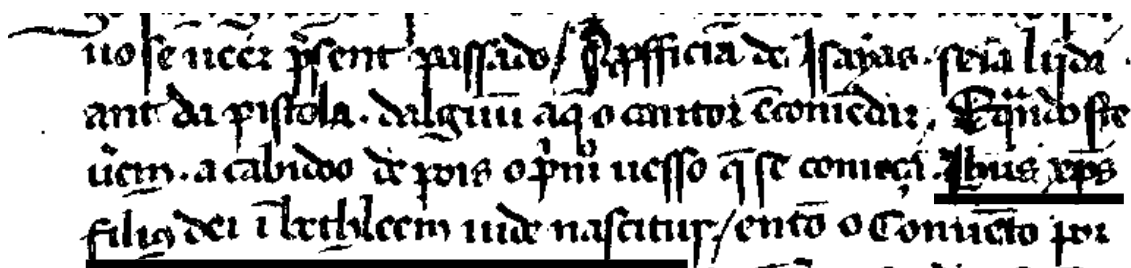 uo se ueer p̃sent passado / A p̃fficia de Isayas. seia lijda.
ant da pistola. dalguũ aq̃ o cantor ẽcomẽdar. E q̃ndo ste
uem. acabidoo de pois o p̃mo uesso q̃ se comeca. Ihus xp̃s
filius dei ĩ bethleem iude nascitur / entõ o Conuẽto per